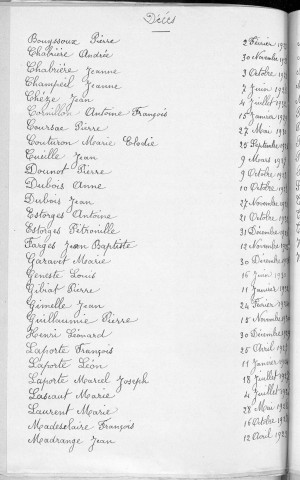 Décès
Bouyssoux Pierre 2 Février
Chabrière Andrée 30 Novembre
Chabrière Jeanne 3 Octobre
Champeil Jeanne 7 Juin
Chèze Jean 4 Juillet
Cornillon Antoine François 15 Janvier
Coursac Pierre 27 Mai
Couturon Marie Elodie 25 Septembre
Cueille Jean 9 Mars
Dounot Pierre 9 Octobre
Dubois Anne 10 Octobre
Dubois Jean 27 Novembre
Estorges Antoine 21 Octobre
Estorges Pétronille 31 Décembre
Farges Jean Baptiste 12 Novembre
Garavet Marie 30 Décembre
Geneste Louis 16 Juin
Gibiat Pierre 11 Janvier
Gimelle Jean 24 Février
Guillaumie Pierre 15 Novembre
Henri Léonard 30 Décembre
Laporte François 25 Avril
Laporte Léon 11 Janvier
Laporte Marcel Joseph 18 Juillet
Lascaut Marie 4 Juillet
Laurent Marie 28 Mai
Madesclaire François 16 Octobre
Madrange Jean 12 Avril